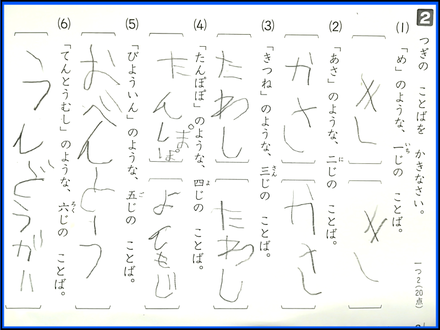 2 つぎの ことばを かきなさい。
一つ2(20点)
(1) 「め」のような、一じの ことば。
(2) 「あさ」のような、二じの ことば。
かさし
かさし
(3) 「きつね」のような、三じの ことば。
たわし
たわし
(4) 「たんぽぽ」のような、四じの ことば。
よんもじ
(5) 「びょういん」のような、五じの ことば。
おべんとーつ
(6) 「てんとうむし」のような、六じの ことば。
うんどうが